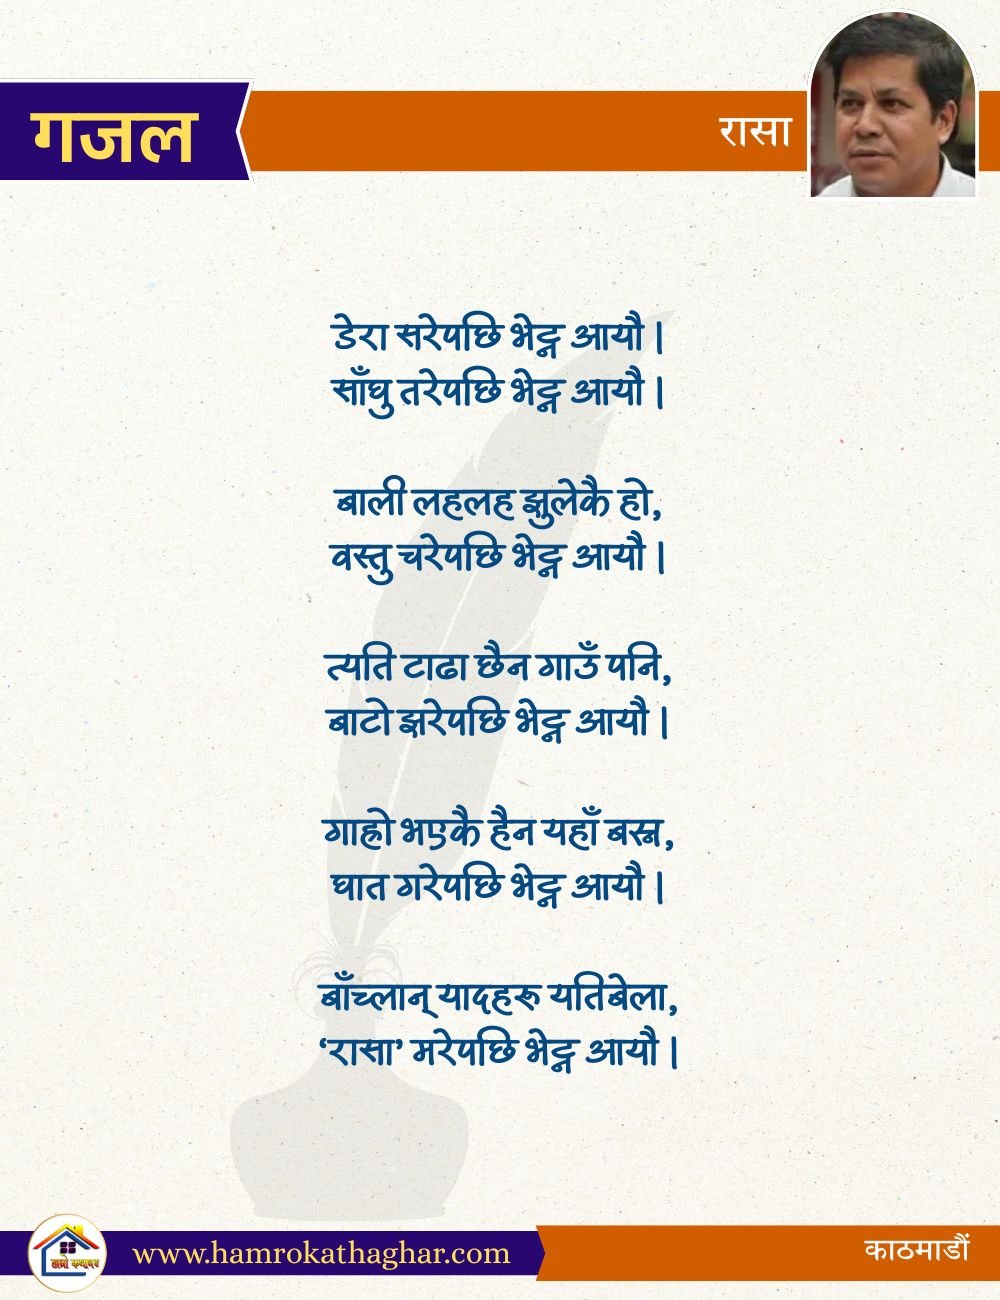 गजल
रासा
डेरा सरेपछि भेट्न आयौ |
साँघु तरेपछि भेट्न आयौ |
बाली लहलह झुलेकै हो,
वस्तु चरेपछि भेट्न आयौ |
त्यति टाढा छैन गाउँ पनि,
बाटो झरेपछि भेट्न आयौ |
गाह्रो भएकै हैन यहाँ बस्न,
घात गरेपछि भेट्न आयौ |
बाँच्लान् यादहरू यतिबेला,
‘रासा’ मरेपछि भेट्न आयौ |
हाम्रो कथाघर
www.hamrokathaghar.com
काठमाडौं